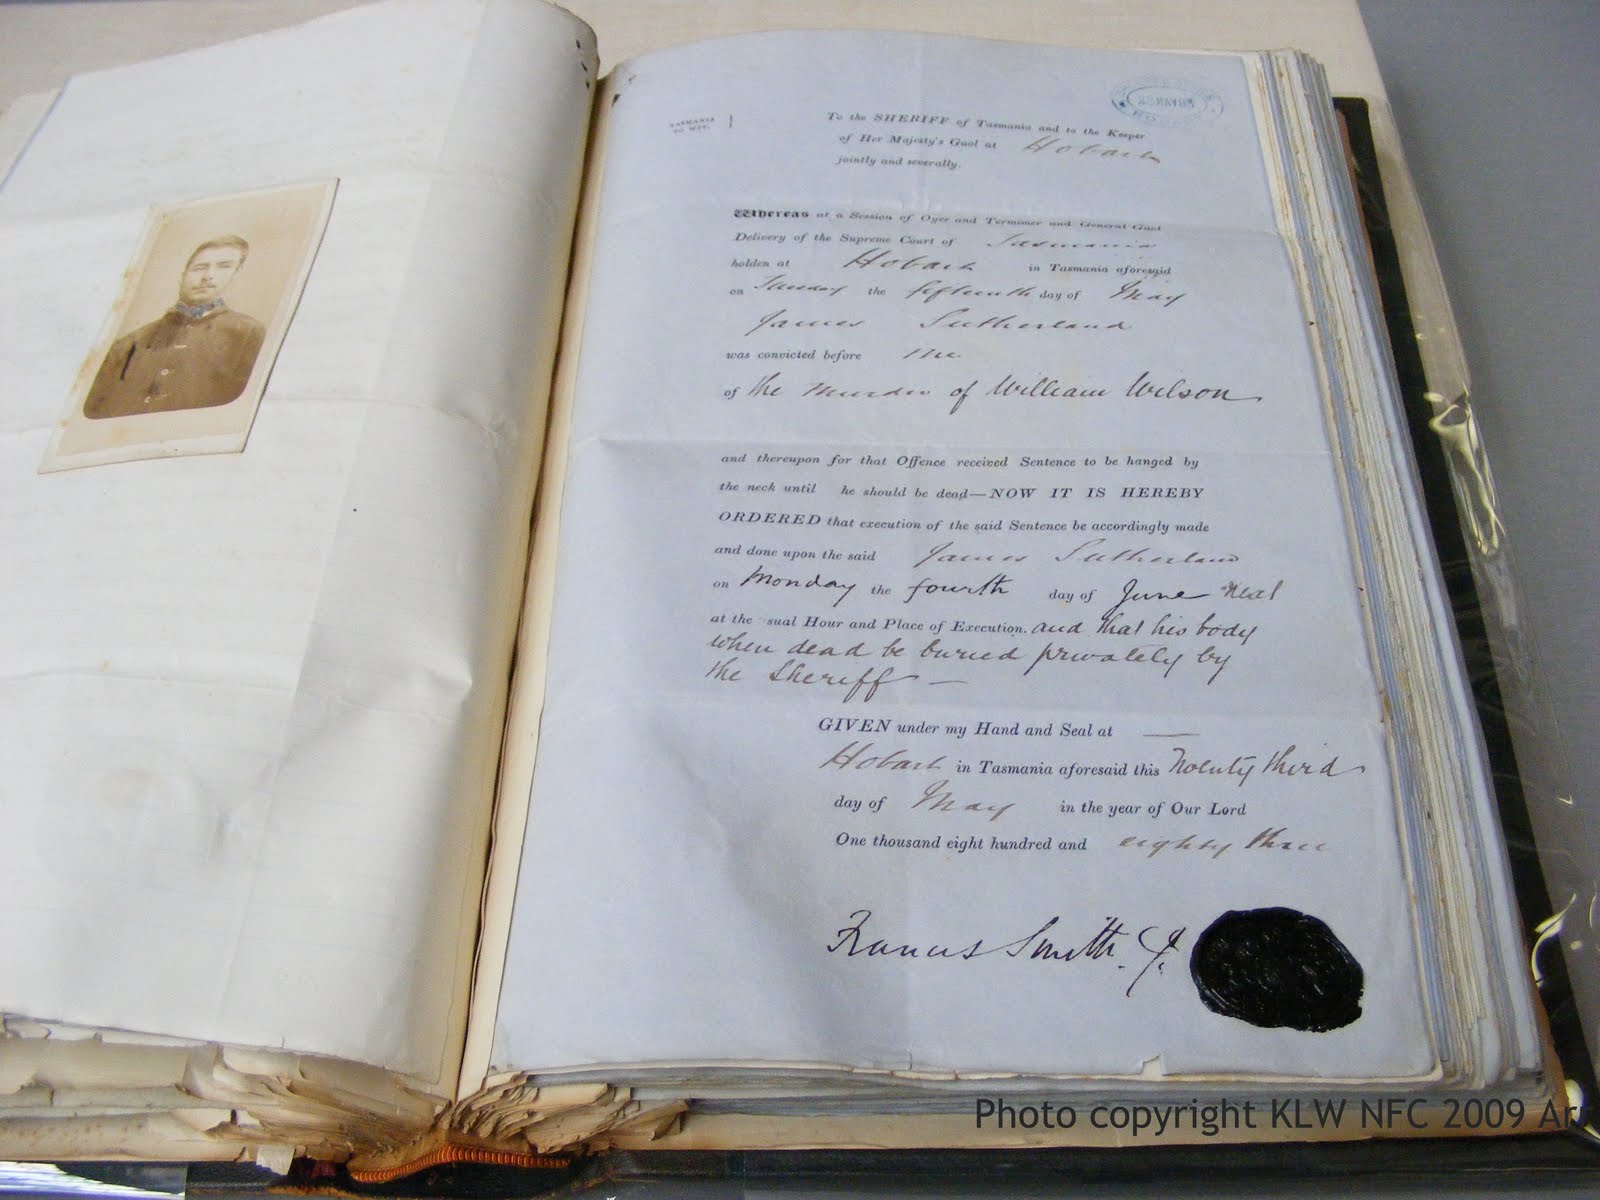 TASMANIA
TO WIT.
To the SHERIFF of Tasmania and to the Keeper
of Her Majesty's Gaol at Hobart
jointly and severally.
Whereas at a Session of Oyer and Terminer and General Gaol
Delivery of the Supreme Court of Tasmania
holden at Hobart in Tasmania aforesaid
on Tuesday the fifteenth day of May
James Sutherland
was convicted before me
of the Murder of William Wilson
and thereupon for that Offence received Sentence to be hanged by
the neck until he should be dead—NOW IT IS HEREBY
ORDERED that execution of the said Sentence be accordingly made
and done upon the said James Sutherland
on Monday the fourth day of June next
at the sual Hour and Place of Execution. and that his body
when dead be buried privately by
the Sheriff —
GIVEN under my Hand and Seal at —
Hobart in Tasmania aforesaid this Twenty third
day of May in the year of Our Lord
One thousand eight hundred and eighty three
Francis Smith
Photo copyright KLW NFC 2009